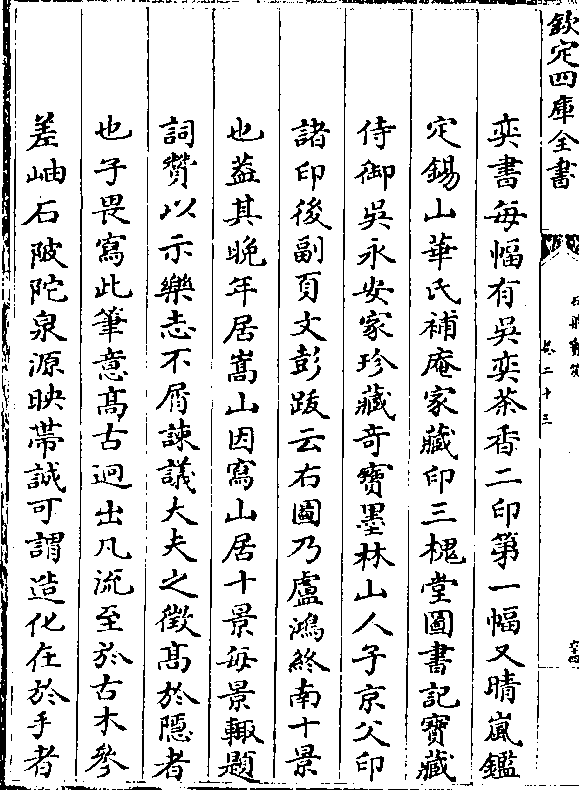 欽定四庫全書
卷二十三
奕書每幅有吳奕茶香二印第一幅又晴嵐鑑
定錫山華氏補庵家藏印三槐堂圖書記寶藏
侍御吳永安家珍藏竒寶墨林山人子京父印
諸印後副頁文彭跋云右圖乃盧鴻終南十景
也葢其晚年居嵩山因寫山居十景每景輙題
詞贊以示樂志不屑諫議大夫之徵髙於隱者
也子畏寫此筆意髙古迥出凡流至於古木參
差岫石陂陀泉源映帶誠可謂造化在於手者